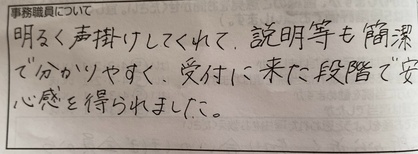 事務職員について
明るく声掛けしてくれて、説明等も簡潔
で分かりやすく、受付に来た段階で安
心感を得られました。